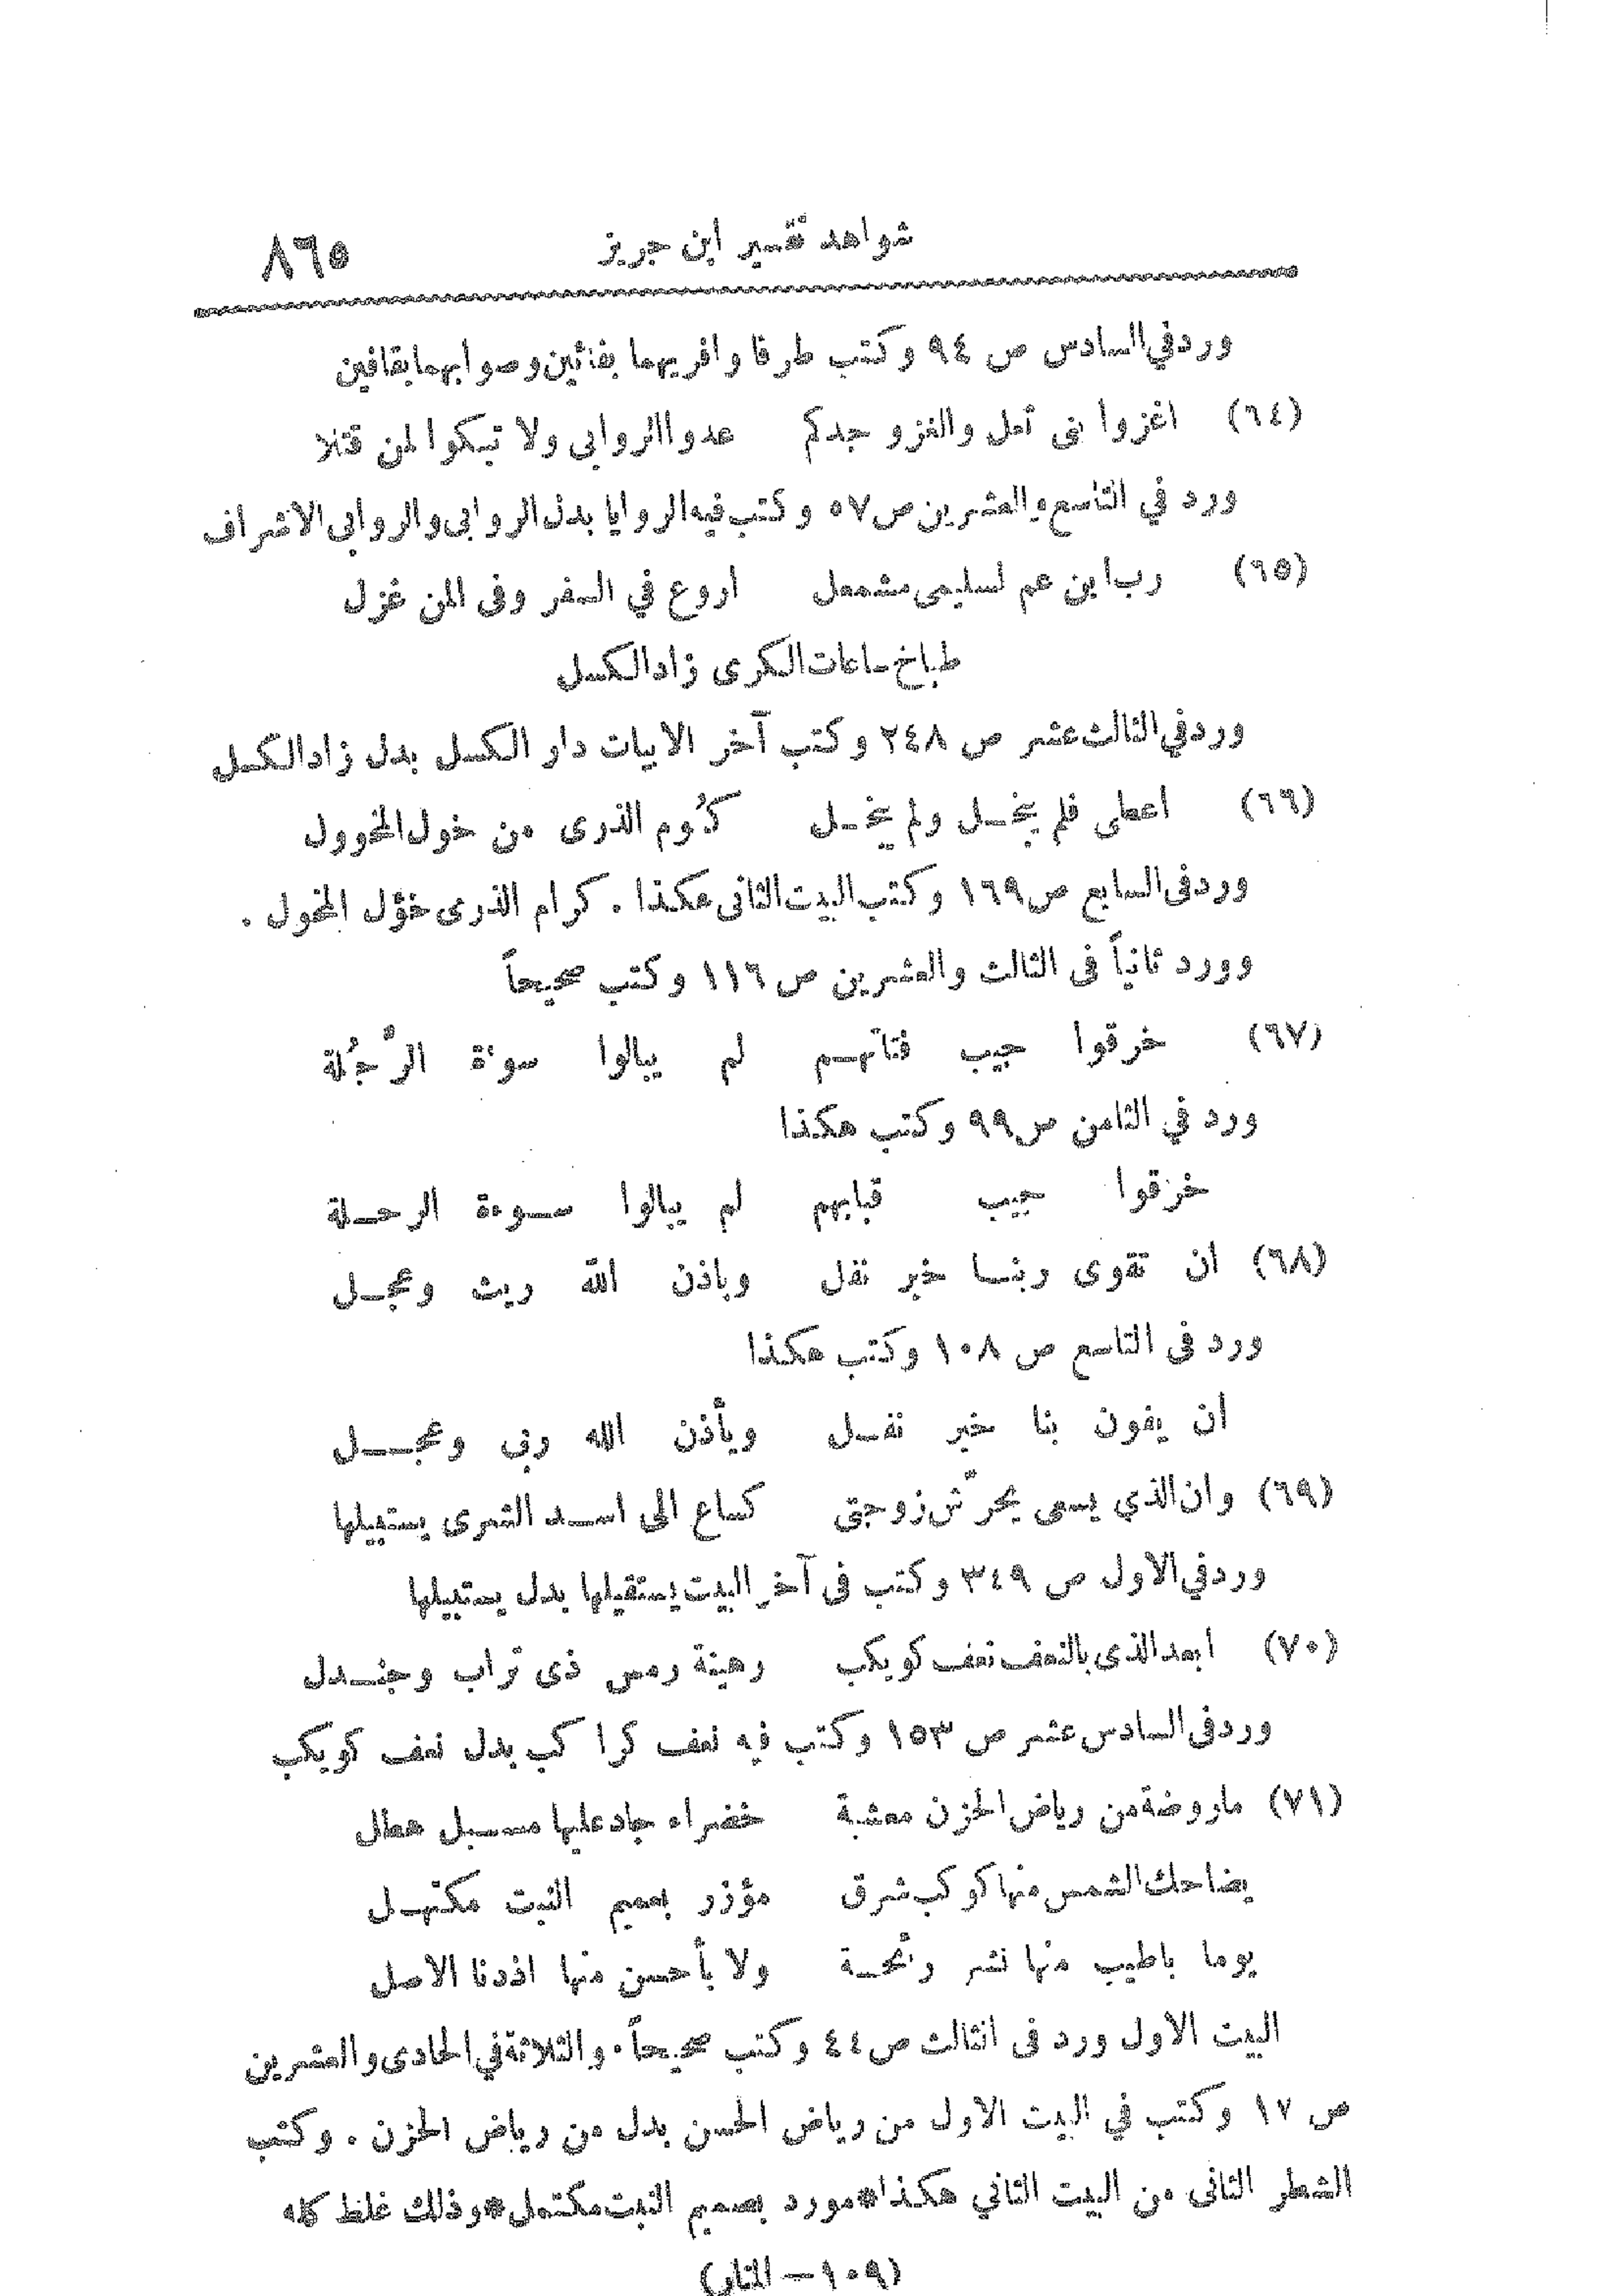 شواهد تفسير ابن جرير ٨٦٥
ورد في السادس ص ٩٤ وكتب طرفا وافريهما بفائين وصوابهما بقافين
(٦٤) اغزوا بنى ثعل والغزو جدكم عدوا الروابي ولا تبكوا لمن قتلا
ورد في التاسع والعشرين ص ٥٧ وكتب فيه الروايا بدل الروابي والروابي الاشراف
(٦٥) رب ابن عم لسليمى مشمعل اروع في السفر وفى الحى غزل
طباخ ساعات الكرى زاد الكسل
ورد في الثالث عشر ص ٢٤٨ وكتب آخر الابيات دار الكسل بدل زاد الكسل
(٦٦) اعطى فلم يبخــل ولم يبخــل كُوم الذرى من خول المخوول
ورد فى السابع ص ١٦٩ وكتب البيت الثانى هكذا . كرام الذرى خؤل المخول .
وورد ثانياً فى الثالث والعشرين ص ١١٦ وكتب صحيحاً
(٦٧) خرقوا جيب فتاتهــم لم يبالوا سوءة الرَّجُلة
ورد في الثامن ص ٩٩ وكتب هكذا
خزقوا جيب قبابهم لم يبالوا ســوءة الرحــلة
(٦٨) ان تقوى ربنــا خير نفل وباذن الله ريث وعجــل
ورد فى التاسع ص ١٠٨ وكتب هكذا
ان يفون بنا خير نفــل ويأذن الله ربى وعجــل
(٦٩) وان الذي يسعى يحرّش زوجتى كساع الى اســد الشرى يستبيلها
ورد في الاول ص ٣٤٩ وكتب فى آخر البيت يستقيلها بدل يستبيلها
(٧٠) ابعد الذى بالنعف نعف كويكب رهينة رمس ذى تراب وجنــدل
ورد فى السادس عشر ص ١٥٣ وكتب فيه نعف كراكب بدل نعف كويكب
(٧١) ما روضة من رياض الحزن معشبة خضراء جاد عليها مســبل هطل
يضاحك الشمس منها كوكب شرق مؤزر بعميم النبت مكتهــل
يوما باطيب منها نشر رائحــة ولا بأحسن منها اذ دنا الاصل
البيت الاول ورد فى الثالث ص ٤٤ وكتب صحيحاً . والثلاثة في الحادى والعشرين
ص ١٧ وكتب في البيت الاول من رياض الحسن بدل من رياض الحزن . وكتب
الشطر الثانى من البيت الثاني هكذا * مورد بصميم النبت مكتمل * وذلك غلط كله
(١٠٩ – المنار)